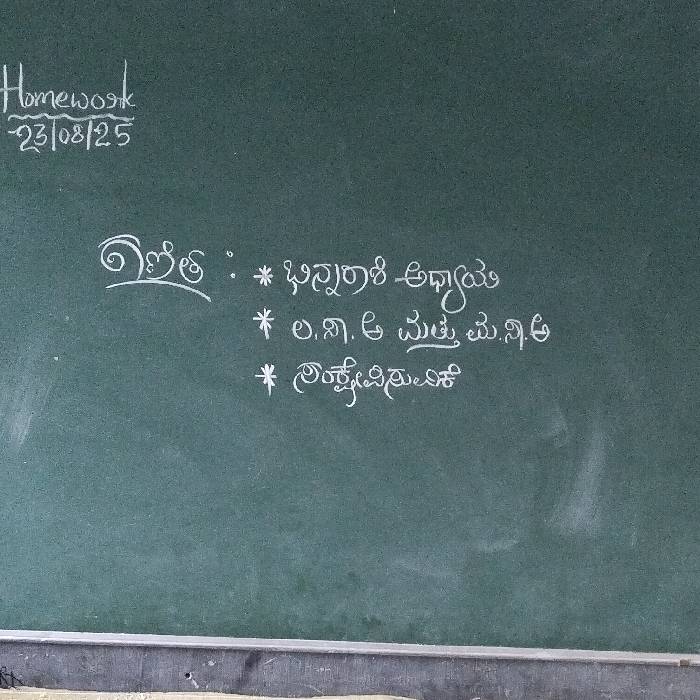 Homework
23/08/25
ಗಣಿತ : * ಭಿನ್ನರಾಶಿ ಅಧ್ಯಾಯ
* ಲ.ಸಾ.ಅ ಮತ್ತು ಮ.ಸಾ.ಅ
* ಸಂಕ್ಷೇಪಿಸುವಿಕೆ